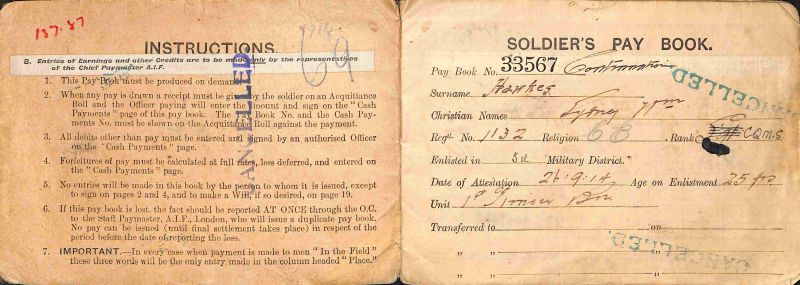 137.87
INSTRUCTIONS.
8. Entries of Earning and other Credits are to be made only by the representatives
of the Chief Paymaster A.I.F.
1. This Pay Book must be produced on demand.
2. When any pay is drawn a receipt must be given by the soldier on an Acquittance
Roll and the Officer paying will enter the amount and sign on the "Cash
Payments" page of this pay book. The Book No. and the Cash Pay-
ments No. must be shown on the Acquittance Roll against the payment.
3. All debits other than pay must be entered and signed by an authorised Officer
on the "Cash Payments" page.
4. Forfeitures of pay must be calculated at full rates, less deferred, and entered on
the "Cash Payments" page.
5. No entries will be made in this book by the person to whom it is issued, except
to sign on pages 2 and 4, and to make a Will, if so desired, on page 19.
6. If this pay book is lost, the fact should be reported AT ONCE through the O.C.
to the Staff Paymaster, A.I.F., London, who will issue a duplicate pay book.
No pay can be issued (until final settlement takes place) in respect of the
period before the date of reporting the loss.
7. IMPORTANT.—In every case when payment is made to men "In the Field"
these three words will be the only entry made in the column headed "Place."
CANCELLED
SOLDIER'S PAY BOOK.
Pay Book No. 33567 Continuation
Surname Hawkes
Christian Names Sydney Wm
Regtl. No. 1132 Religion CE Rank C.Q.M.S
Enlisted in 5th Military District.
Date of Attestation 26.9.14 Age on Enlistment 25 yrs
Unit 1st Pioneer Bn.
Transferred to on
" " "
" " "
CANCELLED.
CANCELLED.